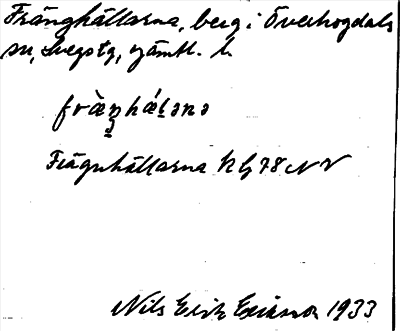 Frånghällarna, berg i Överhogdals
sn, Svegs tg, Jämtl. l.
fràŋháḷənə
Frägnhällarna Kbg 78 NV
Nils Erik Eriksson 1933